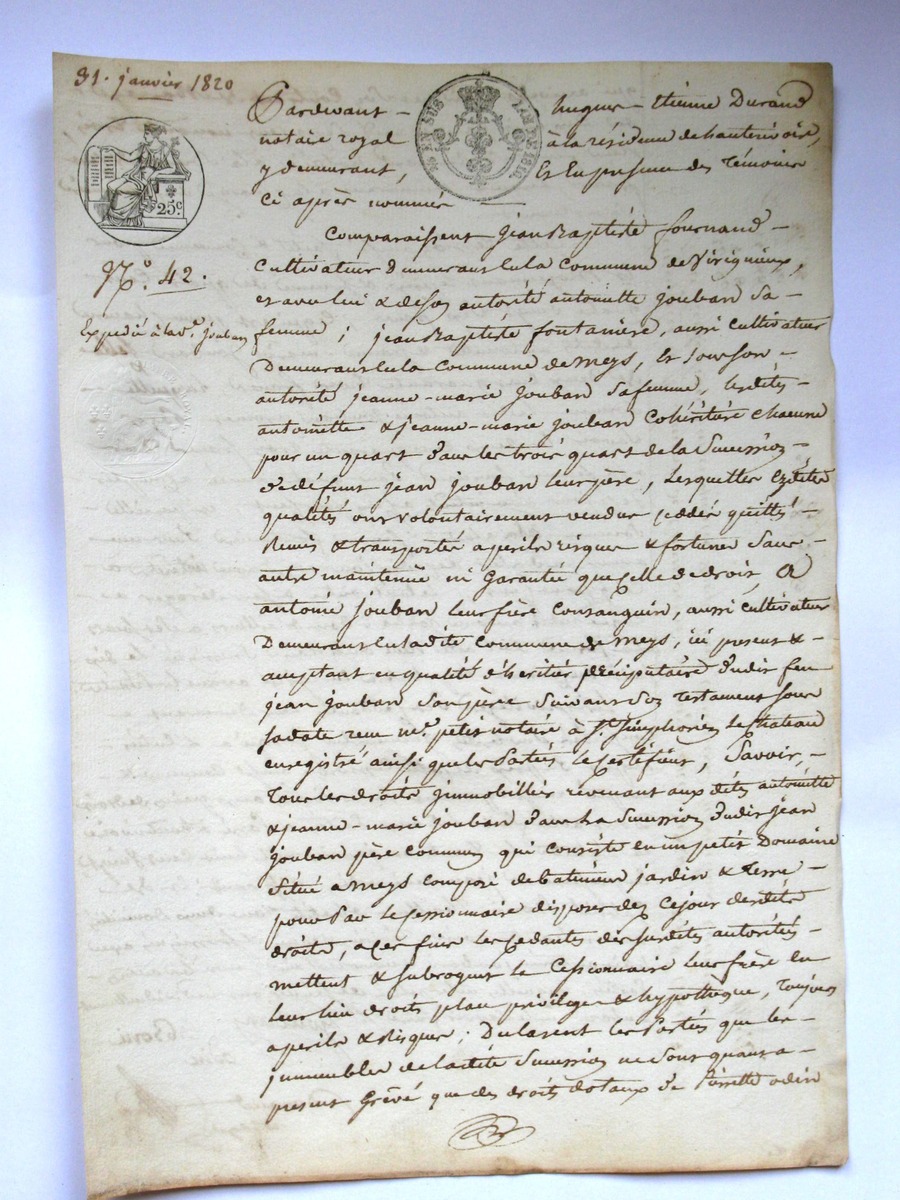 31. janvier 1820
25c
EN SUS
N.o 42.
Expédié à la d.e Jouban
Pardevant - hugues - Etienne Durand
notaire royal à la résidence de hauterivoire,
y demeurant, Et En presence des Témoins
Ci après nommés —
Comparaissent Jean Baptiste fournand -
Cultivateur demeurant en la Commune de Virigneux,
et avec lui & de son autorité antoinette Jouban sa
femme ; jean Baptiste fontaniere, aussi cultivateur
Demeurant en la Commune de meys, Et sous son -
autorité jeanne-marie Jouban sa femme, lesdites -
antoinette & jeanne-marie jouban Cohéritière chacune
pour un quart dans les trois quart de la Succession
de défunt jean jouban leur père, Lesquelles Ezdites
qualités ont volontairement vendu, cédé, quitté -
Remis & transporté a perils risques & fortune Sans -
autre maintenue ni Garantie que celle de droit, A
antoine Jouban leur frère Consanguin, aussi Cultivateur
Demeurant en ladite Commune de meys, ici present & -
acceptant en qualité d'héritier préciputaire dudit feu
jean Jouban Son père Suivant Son Testament Sous
sa date reçu m.e petit notaire à S.t Simphorien Le Chateau
enregistré ainsi que les Parties le Certifient, Savoir, -
Tous les droits immobiliers revenant aux dites antoinette
& jeanne-marie jouban dans la Succession dudit jean
Jouban père Commun qui Consiste en un petit Domaine
Situé a meys composé de batiment jardin & terre -
pour Par le Cessionnaire disposer dez Cejour desdits
droits, a cet effet les Cedantes desdites autorités -
mettent & subrogent le Cessionnaire leur frère En
leur lieu droits place privilege & hypothèque, Toujours
a perils & Risques ; Déclarent les Parties que les -
jmmeubles de ladite Succession ne Sont quant a -
present Grévé que des droits dotaux de Pierrette odin